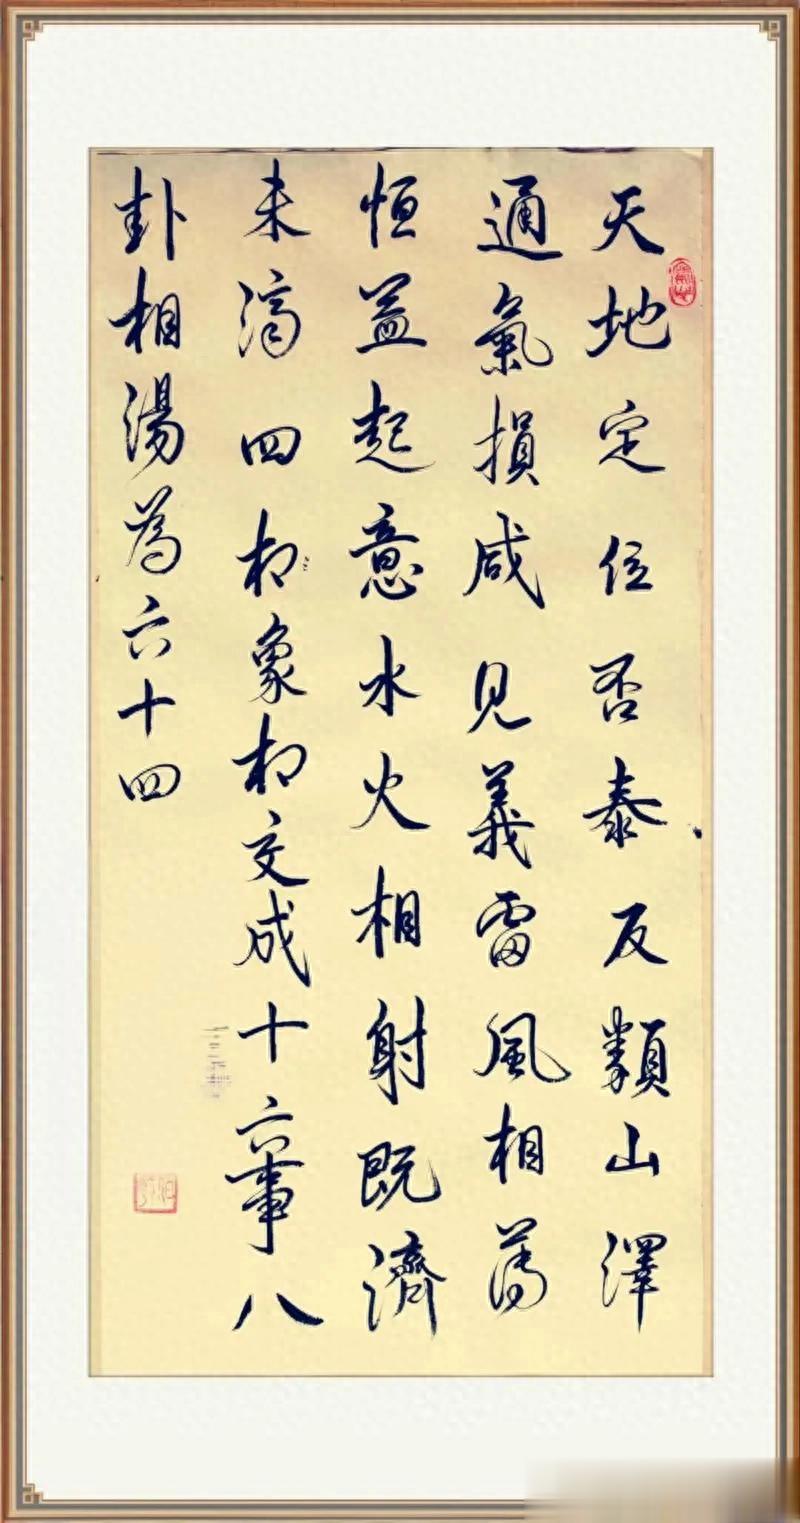 天地定位否泰反類山澤
通氣損咸見義雷風相薄
恒益起意水火相射既濟
未濟四相象相交成十六事八
卦相湯為六十四